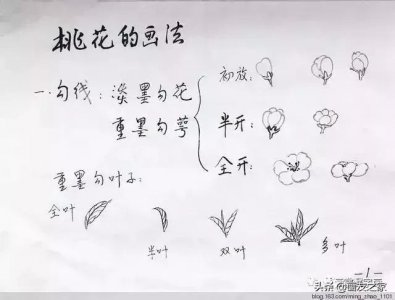 桃花的画法
一.勾线:淡墨勾花
重墨勾萼
初放:
半开:
全开:
重墨勾叶子:
全叶
半叶
双叶
多叶
-1-
头条@画友之家
blog.163.com/ming_zhao_1101